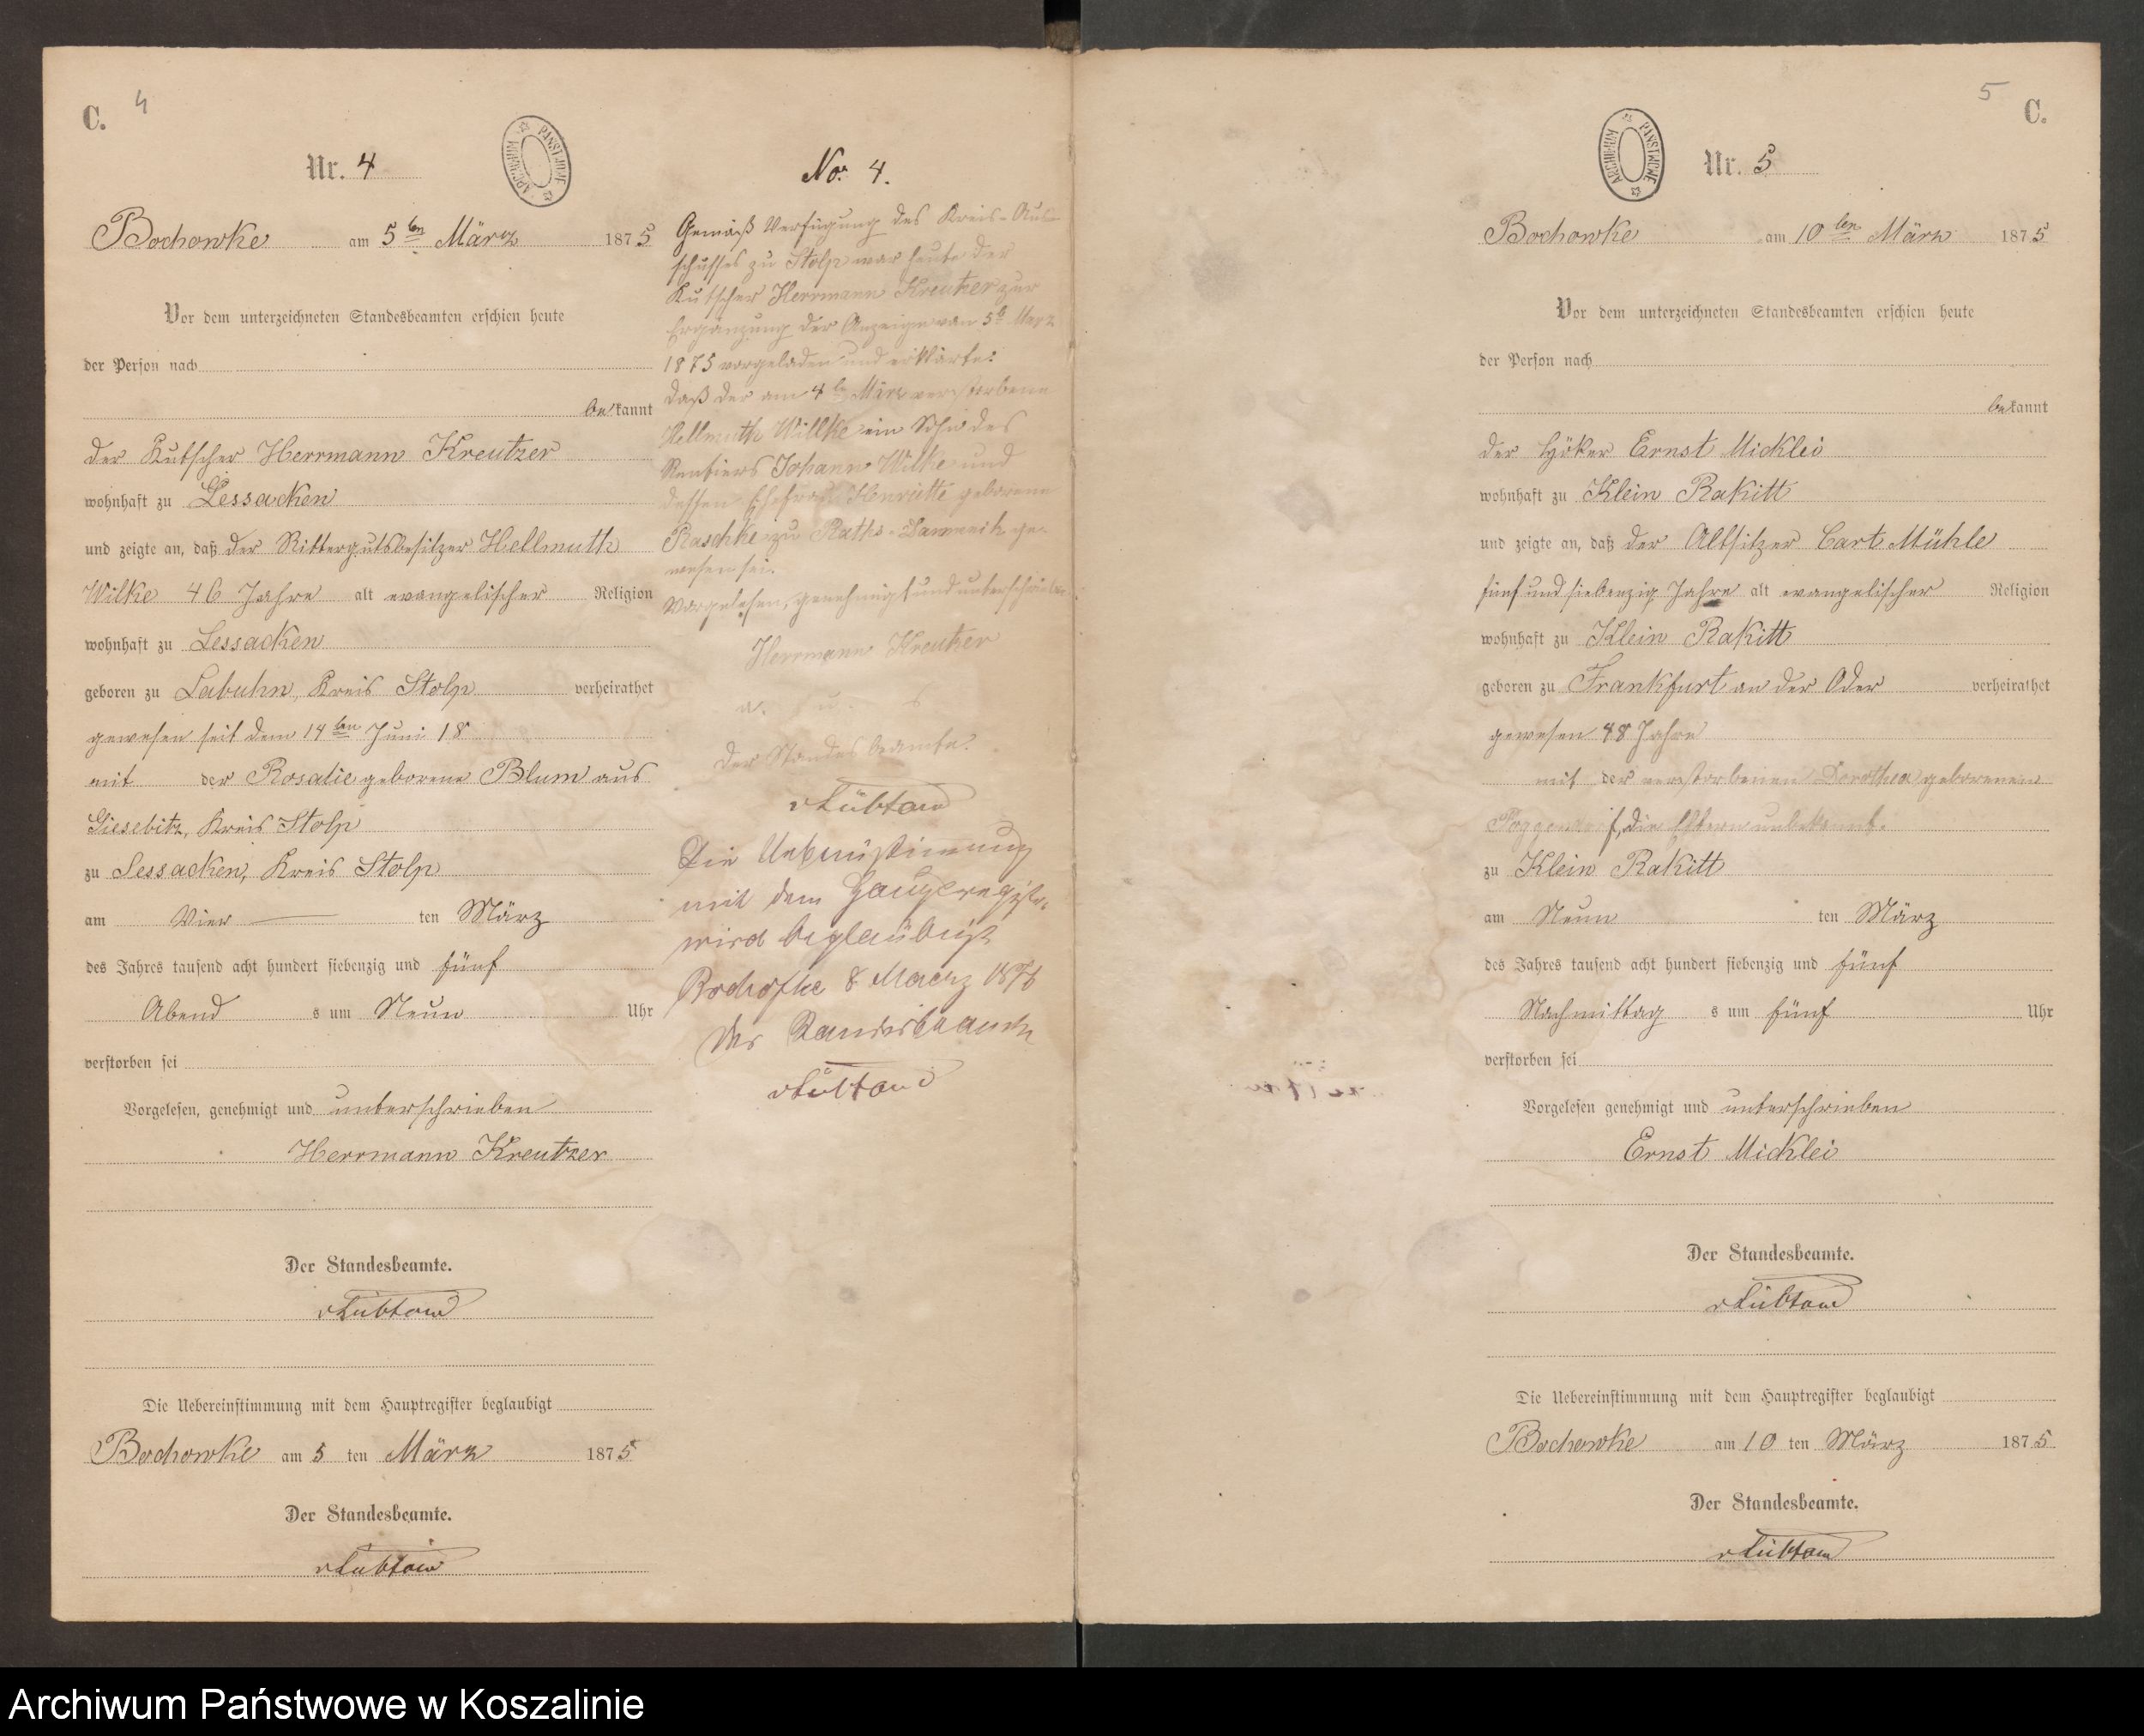 C. 4
Nr. 4
ARCHIWUM PAŃSTWOWE
Bochowke am 5ten März 1875
Vor dem unterzeichneten Standesbeamten erschien heute
der Person nach
bekannt
der Kutscher Herrmann Kreutzer
wohnhaft zu Lessacken
und zeigte an, daß der Rittergutsbesitzer Hellmuth
Wilke 46 Jahre alt evangelischer Religion
wohnhaft zu Lessacken
geboren zu Labuhn, Kreis Stolp verheirathet
gewesen seit dem 14ten Juni 18
mit der Rosalie geborene Blum aus
Giesebitz, Kreis Stolp
zu Lessacken, Kreis Stolp
am Vier ten März
des Jahres tausend acht hundert siebenzig und fünf
Abend s um Neun Uhr
verstorben sei
Vorgelesen, genehmigt und unterschrieben
Herrmann Kreutzer
Der Standesbeamte.
vLübtow
Die Uebereinstimmung mit dem Hauptregister beglaubigt
Bochowke am 5 ten März 1875
Der Standesbeamte.
vLübtow
No. 4.
Gemäß Verfügung des Kreis-Aus-
schusses zu Stolp war heute der
Kutscher Herrmann Kreutzer zur
Ergänzung der Anzeige von 5t März
1875 vorgeladen und erklärte:
daß der am 4t März verstorbene
Hellmuth Willke ein Sohn des
Rentiers Johann Wilke und
dessen Ehefrau Henriette geborene
Raschke zu Raths-Damnitz ge-
wesen sei.
Vorgelesen, genehmigt und unterschrieben
Herrmann Kreutzer
Der Standesbeamte.
vLübtow
Die Uebereinstimmung
mit dem Hauptregister
wird beglaubigt
Bochofke 8 Maerz 1876
Der Standesbeamte
vLübtow
5 C.
ARCHIWUM PAŃSTWOWE
Nr. 5
Bochowke am 10ten März 1875
Vor dem unterzeichneten Standesbeamten erschien heute
der Person nach
bekannt
der Höker Ernst Micklei
wohnhaft zu Klein Rakitt
und zeigte an, daß der Altsitzer Carl Mühle
fünf und siebenzig Jahre alt evangelischer Religion
wohnhaft zu Klein Rakitt
geboren zu Frankfurt an der Oder verheirathet
gewesen 48 Jahre
mit der verstorbenen Dorothea geborenen
Poggendorf, die Eltern unbekannt.
zu Klein Rakitt
am Neun ten März
des Jahres tausend acht hundert siebenzig und fünf
Nachmittag s um fünf Uhr
verstorben sei
Vorgelesen genehmigt und unterschrieben
Ernst Micklei
Der Standesbeamte.
vLübtow
Die Uebereinstimmung mit dem Hauptregister beglaubigt
Bochowke am 10 ten März 1875
Der Standesbeamte.
vLübtow
Archiwum Państwowe w Koszalinie